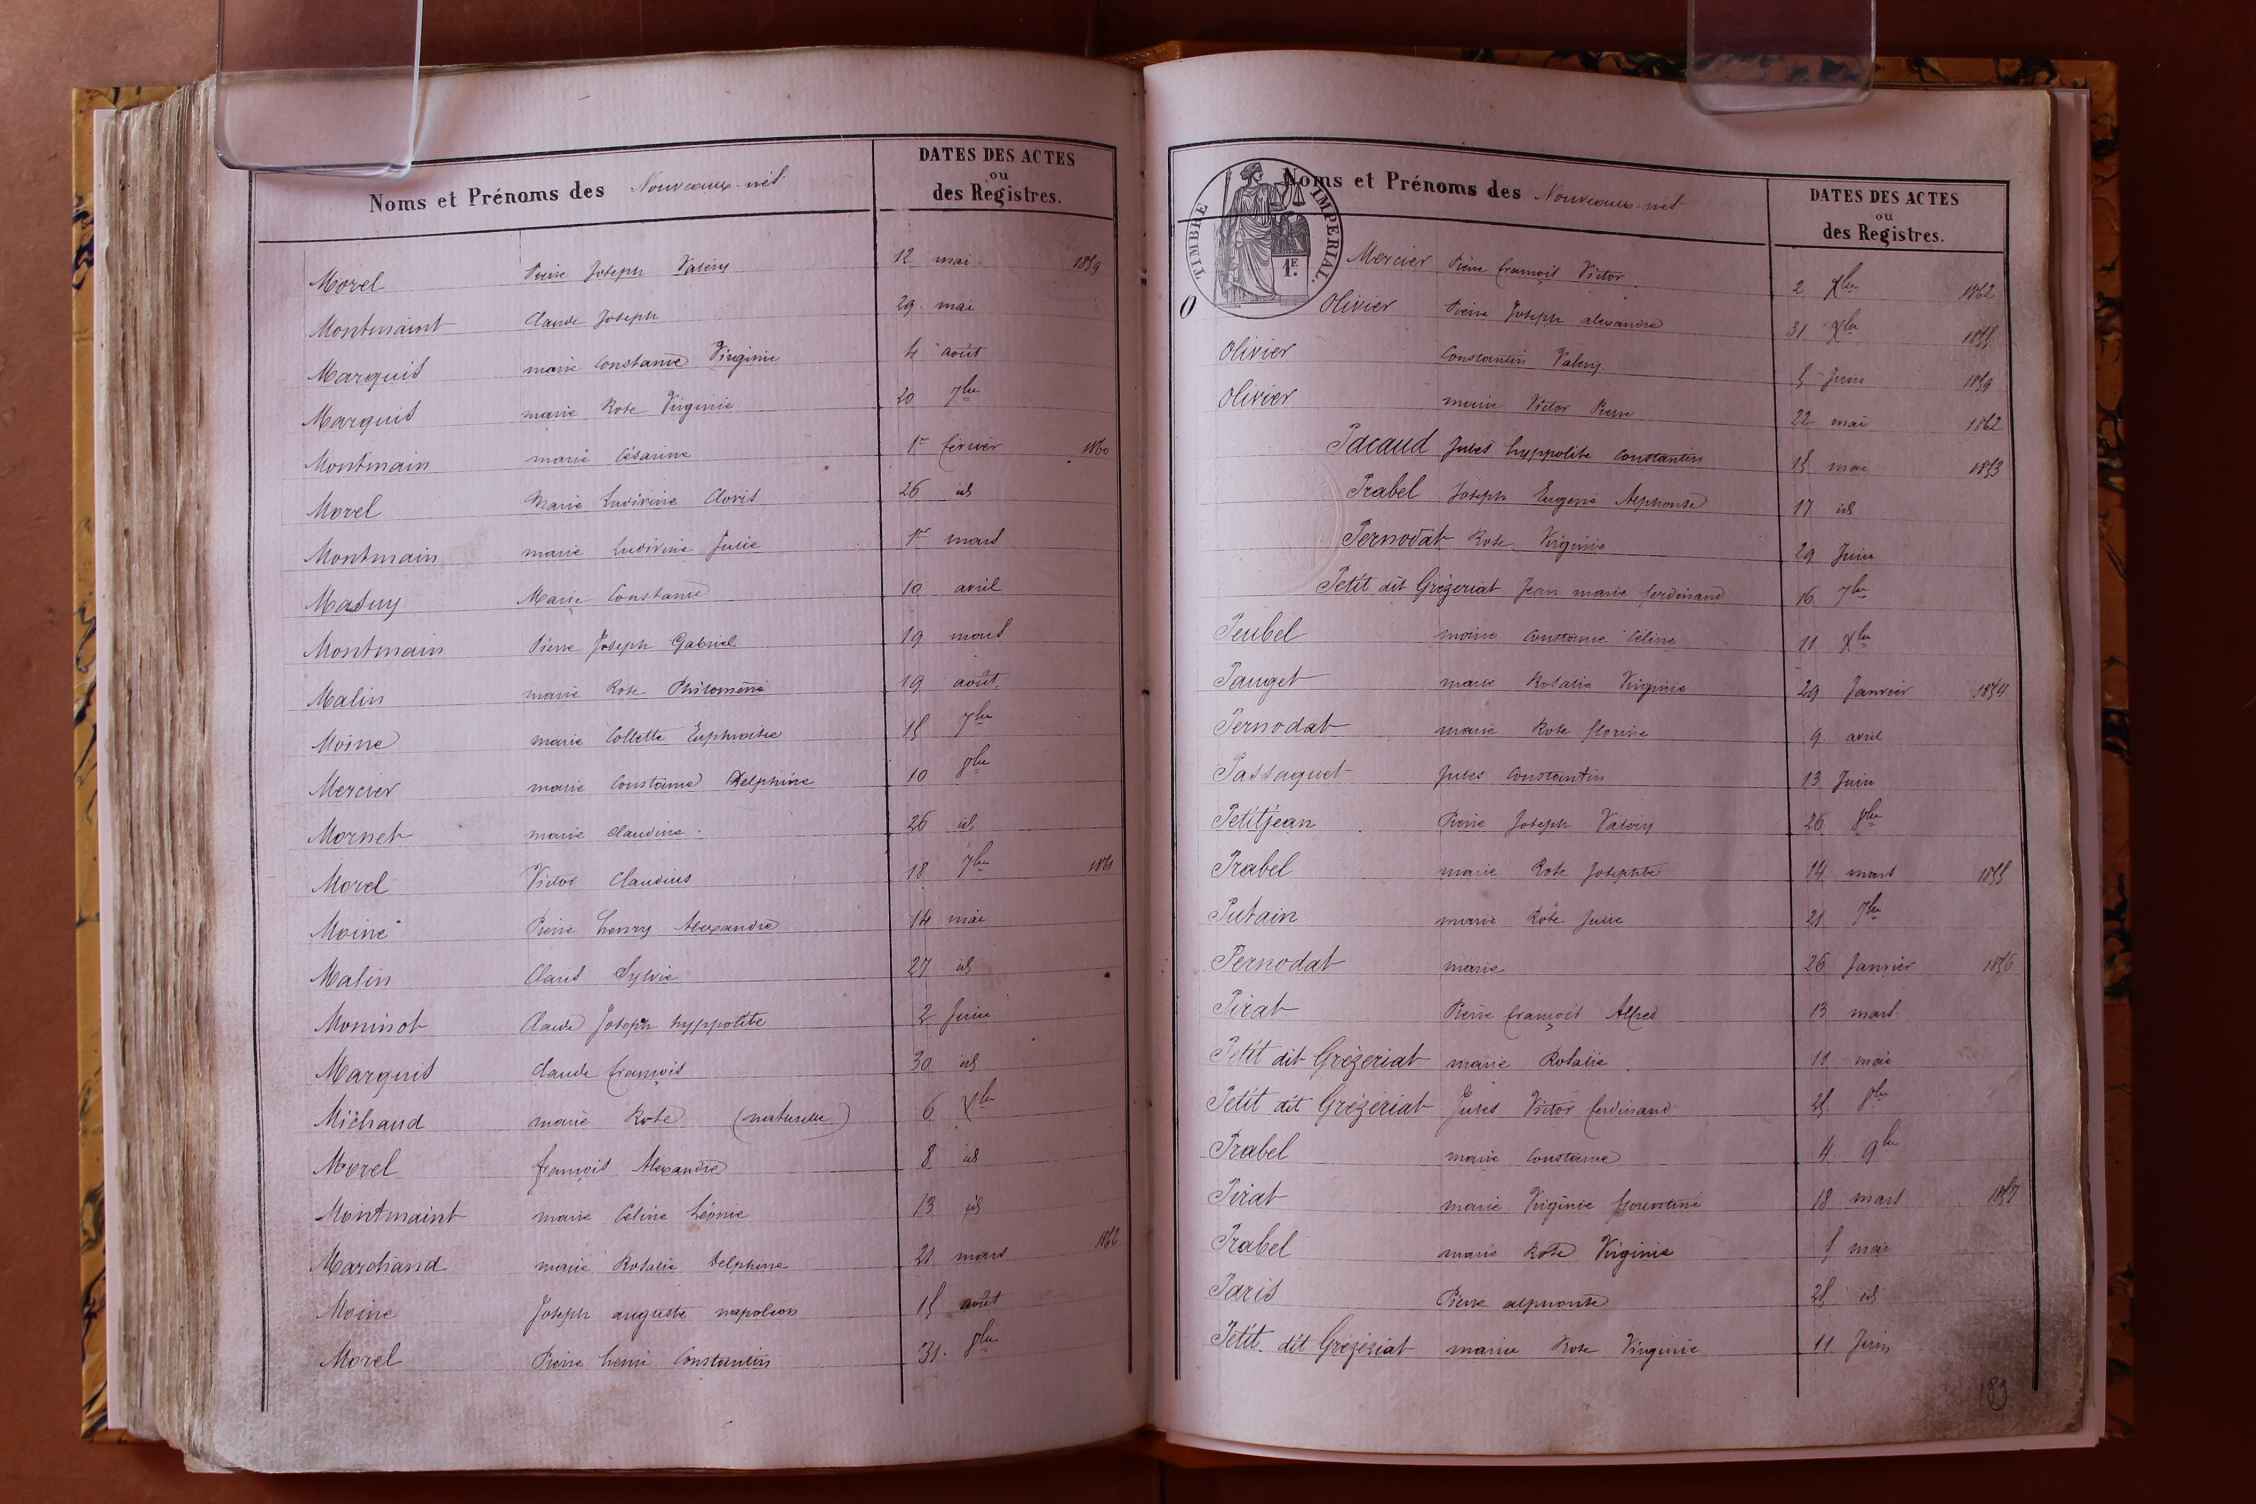 Noms et Prénoms des Nouveaux-nés
DATES DES ACTES
ou
des Registres.
Morel Pierre Joseph Valéry 12 mai 1859
Montmaint Claude Joseph 29 mai
Marquis marie Constance Virginie 4 août
Marquis marie Rose Virginie 20 7bre
Montmain marie Césarine 1er février 1860
Morel Marie Ludivine Clovis 26 id
Montmain marie Ludivine Julie 1er mars
Marie Constance 10 avril
Montmain Pierre Joseph Gabriel 19 mars
Malin marie Rose Philomène 19 août
Moine marie Collette Euphrasie 15 7bre
Mercier marie Constance Delphine 10 8bre
Mornet marie Claudine 26 id
Morel Victor Claudius 18 7bre 1861
Moine Pierre henry Alexandre 14 mai
Malin Claris Sylvie 27 id
Moninot Claude Joseph hyppolite 2 Juin
Marquis Claude françois 30 id
Michaud marie Rose (naturelle) 6 Xbre
Morel françois Alexandre 8 id
Montmaint marie Céline Léonie 13 id
Marchand marie Rosalie Delphine 21 mars 1862
Moine Joseph auguste napoléon 15 août
Morel Pierre henri Constantin 31 8bre
TIMBRE IMPERIAL.
1E.
Noms et Prénoms des Nouveaux-nés
DATES DES ACTES
ou
des Registres.
Mercier Pierre françois Victor 2 Xbre 1862
O
Olivier Pierre Joseph alexandre 31 Xbre 1855
Olivier Constantin Valery 5 Juin 1859
Olivier marie Victor Pierre 22 mai 1862
Pacaud Jules hyppolite Constantin 15 mai 1853
Prabel Joseph Eugène Alphonse 17 id
Pernodat Rose Virginie 29 Juin
Petit dit Grézeriat Jean marie ferdinand 16 7bre
Peubel marie Constance Céline 11 Xbre
Pauget marie Rosalie Virginie 29 Janvier 1854
Pernodat marie Rose florine 9 avril
Passaquet Jules Constantin 13 Juin
Petitjean Pierre Joseph Valéry 26 8bre
Prabel marie Rose Josephte 14 mars 1855
Putain marie Rose Julie 21 7bre
Pernodat marie 26 Janvier 1856
Pirat Pierre françois Alfred 13 mars
Petit dit Grézeriat marie Rosalie 11 mai
Petit dit Grézeriat Jules Victor ferdinand 25 8bre
Prabel marie Constance 4 9bre
Pirat marie Virginie florentine 18 mars 1857
Prabel marie Rose Virginie 5 mai
Paris Pierre alphonse 25 id
Petit dit Grézériat marie Rose Virginie 11 Juin
183